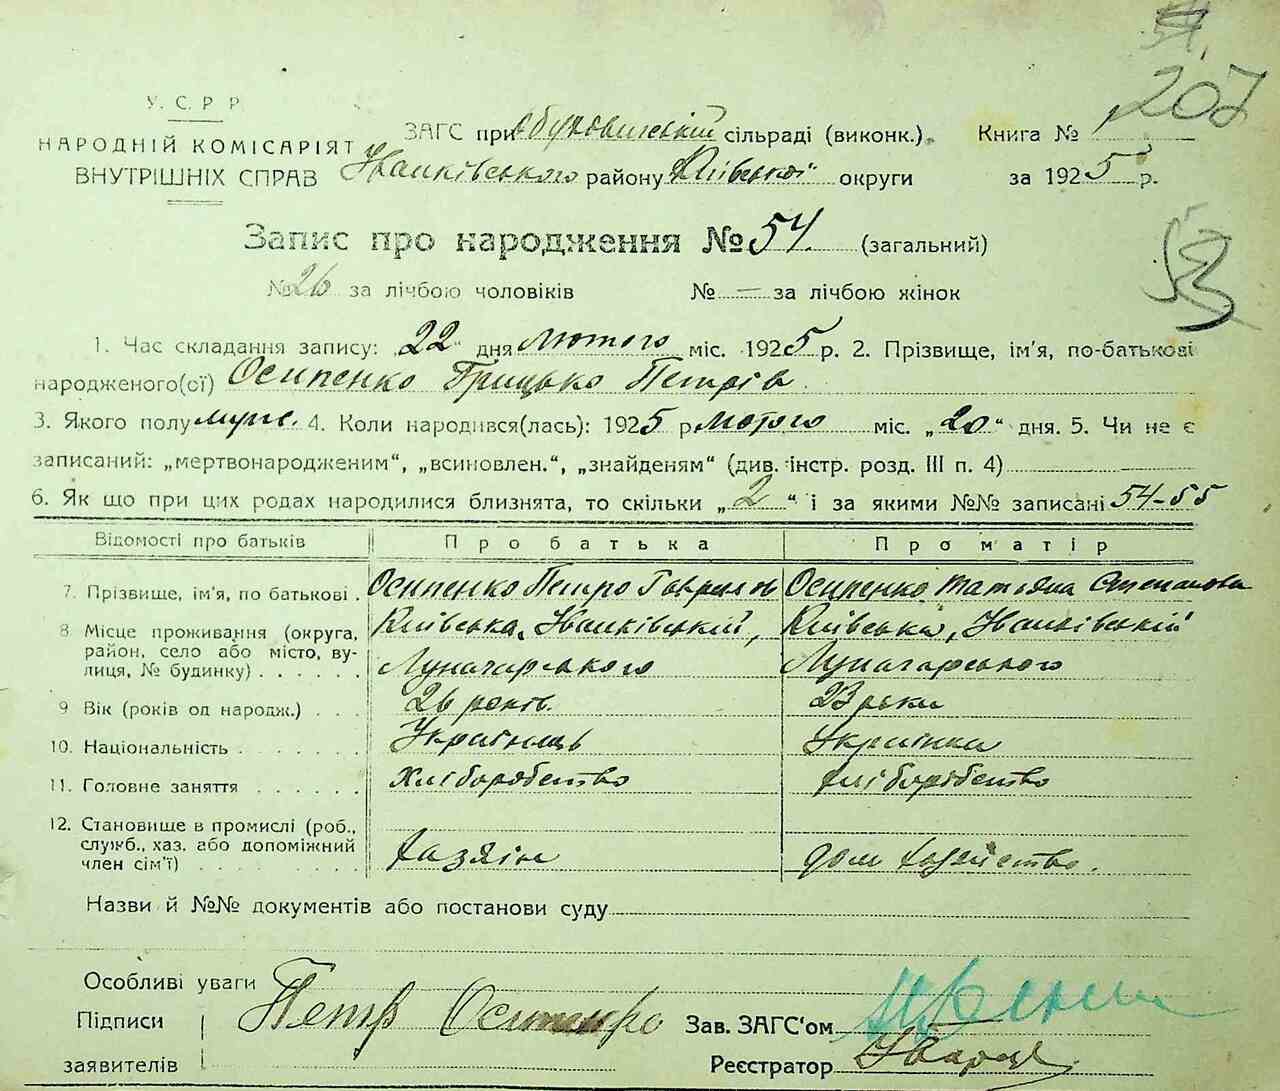 207
У. С. Р Р
НАРОДНІЙ КОМІСАРІЯТ
ВНУТРІШНІХ СПРАВ
ЗАГС при Обуховицькій сільраді (виконк.). Книга №
Іванківського району Київської округи за 1925 р.
Запис про народження № 54. (загальний)
№ 26 за лічбою чоловіків № — за лічбою жінок
1. Час складання запису: „22" дня Лютого міс. 1925 р. 2. Прізвище, ім'я, по-батькові
народженого(ої) Осипенко Грицько Петрів
3. Якого полу муж. 4. Коли народився(лась): 1925 р Лютого міс. „20" дня. 5. Чи не є
записаний: „мертвонародженим", „всиновлен.", „знайденям" (див. інстр. розд. III п. 4)
6. Як що при цих родах народилися близнята, то скільки „2" і за якими №№ записані 54-55
Відомості про батьків Про батька Про матір
7. Прізвище, ім'я, по батькові . Осипенко Петро Гаврилов Осипенко Татьяна Степанова
8 Місце проживання (округа, Київська, Іванківський, Київська, Іванківській
район, село або місто, ву-
лиця, № будинку) . . . . . . Луначарського Луначарського
9 Вік (років од народж.) . . . 26 років. 23 роки
10. Національність . . . . . . . Українець Українка
11. Головне заняття . . . . . . Хліборобство Хліборобство
12. Становище в промислі (роб.,
служб., хаз. або допоміжний
член сім'ї) . . . . . . . . . Хазяін дом хозяйство.
Назви й №№ документів або постанови суду
Особливі уваги
Підписи
заявителів
Петр Осипенко
Зав. ЗАГС'ом
Реєстратор